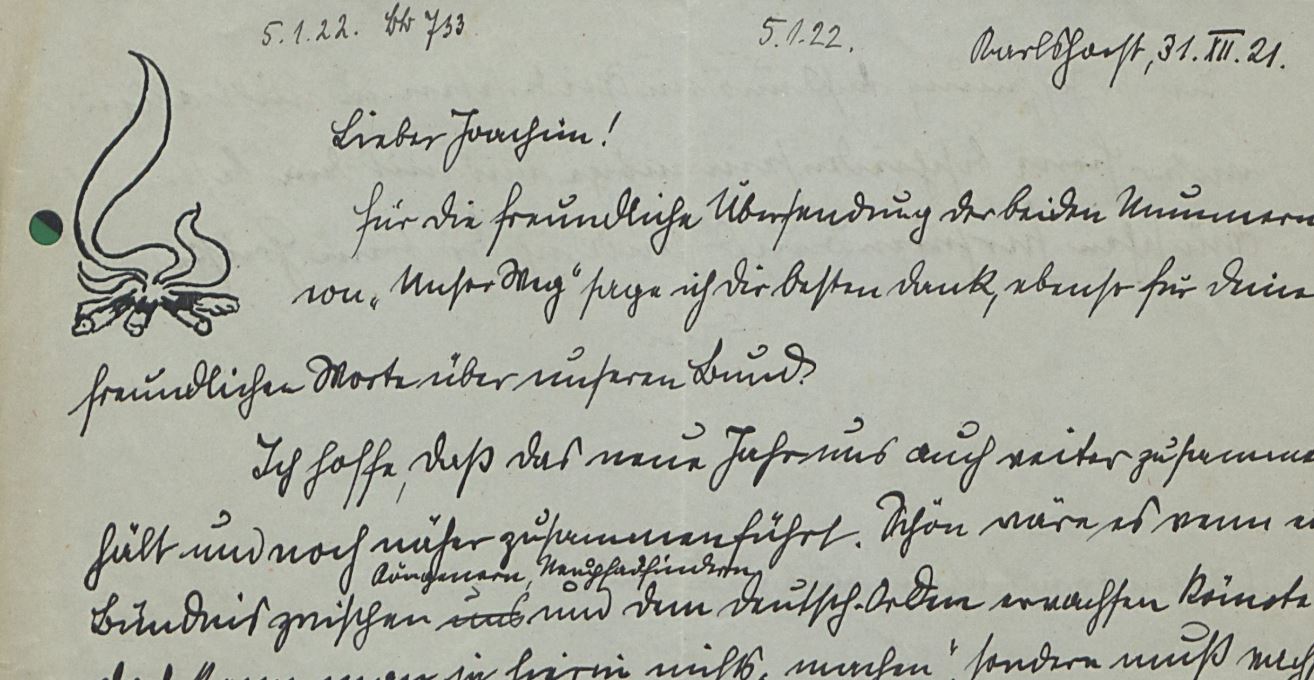 5.1.22. bb 733
5.1.22.
Karlshorst, 31.XII.21.
Lieber Joachim!
für die freundliche Übersendung der beiden Nummern
von „Unser Weg“ sage ich Dir besten Dank, ebenso für Deine
freundlichen Worte über unseren Bund.
Ich hoffe, daß das neue Jahr uns auch weiter zusamme
hält und noch näher zusammenführt. Schön wäre es wenn e
Köngenern, Neupfadfindern
Bündnis zwischen uns und dem deutsch. Orden erwachsen könnte
man ja hierin nichts „machen“, sondern muß